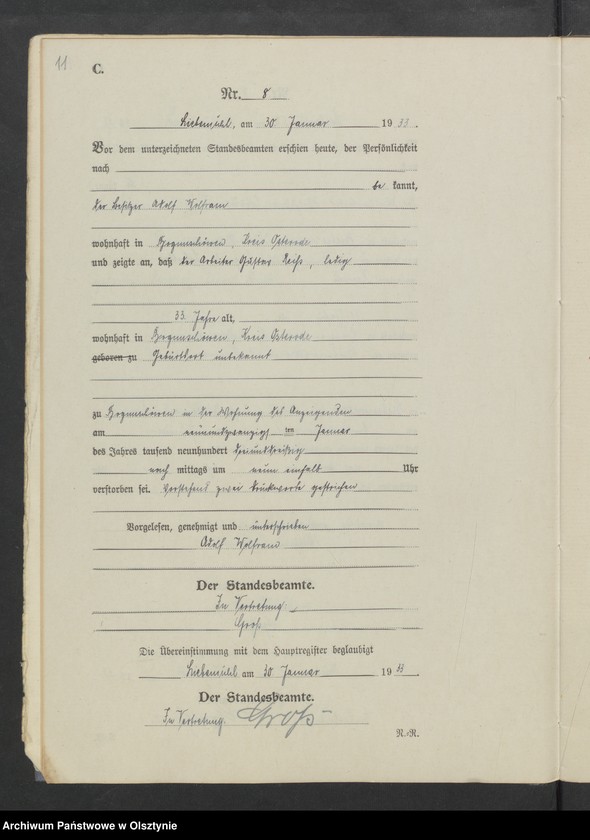 11
C.
Nr. 8
Liebemühl, am 30 Januar 1933.
Vor dem unterzeichneten Standesbeamten erschien heute, der Persönlichkeit
nach
be kannt,
der Besitzer Adolf Wolfram
wohnhaft in Kreis Osterode
und zeigte an, daß der Arbeiter Gustav ledig
33 Jahre alt,
wohnhaft in Kreis Osterode
geboren zu Geburtsort unbekannt
zu in der Wohnung des Anzeigenden
am neunundzwanzigsten Januar
des Jahres tausend neunhundert dreiunddreißig
nach mittags um neun einhalb Uhr
verstorben sei. Vorstehend zwei Druckworte gestrichen
Vorgelesen, genehmigt und unterschrieben
Adolf Wolfram
Der Standesbeamte.
In Vertretung
Groß
Die Übereinstimmung mit dem Hauptregister beglaubigt
Liebemühl am 30 Januar 1933
Der Standesbeamte.
In Vertretung. Groß
R.-R.
Archiwum Państwowe w Olsztynie